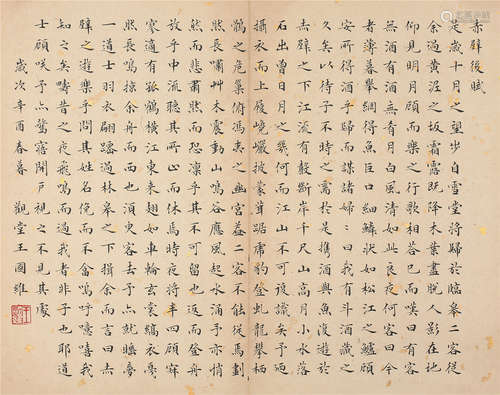 赤壁後賦
是歲十月之望步自雪堂將歸於臨皋二客從
余過黃泥之坂霜露既降木葉盡脫人影在地
仰見明月顧而樂之行歌相荅已而嘆曰有客
無酒有酒無肴月白風清如此良夜何客曰今
者薄暮舉網得魚巨口細鱗狀如松江之鱸顧
安所得酒乎歸而謀諸婦〻曰我有斗酒藏之
久矣以待子不時之需於是攜酒與魚復遊於
赤壁之下江流有聲斷岸千尺山高月小水落
石出曾日月之幾何而江山不可復識矣予迺
攝衣而上履巉巖披蒙茸踞虎豹登虬龍攀栖
鶻之危巢俯馮夷之幽宮蓋二客不能從焉劃
然長嘯艸木震動山鳴谷應風起水涌予亦悄
然而悲肅然而恐凜乎其不可留也返而登舟
放乎中流聽其所止而休焉時夜將半四顧寂
寥適有孤鶴橫江東來翅如車輪玄裳縞衣戛
然長鳴掠余舟而西也須臾客去予亦就睡夢
一道士羽衣翩躚過林皋之下揖余而言曰赤
壁之遊樂乎問其姓名俛而不答嗚呼噫嘻我
知之矣疇昔之夜飛鳴而過我者非子也耶道
士顧咲予亦驚寤開戶視之不見其處
歲次辛酉春暮 觀堂王國維